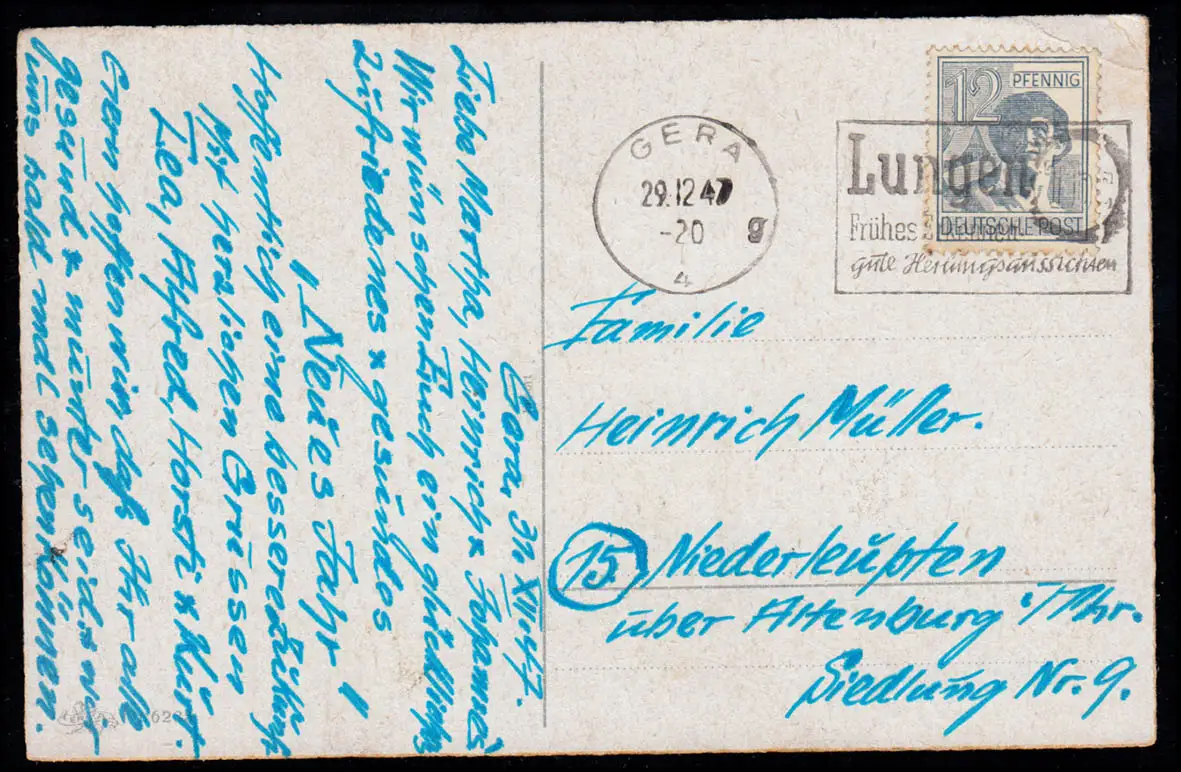 Gera, 31. XII. 47.
Liebe Martha, Heinrich & Johannes
Wir wünschen Euch ein glückliches
zufriedenes & gesundes
! Neues Jahr !
Hoffentlich eine bessere Zukunft
Mit herzlichen Grüssen
Lea, Alfred, Horst & Kurt.
hoffen wir daß Ihr alle
gesund & munter seid & wir
üns bald mal sehen können.
GERA
29.12.47
-20 g
4
12 PFENNIG
DEUTSCHE POST
Lungen
Frühes
gute Heilungsaussichten
Familie
Heinrich Müller.
15 Niederleupten
über Altenburg /Thr.
Siedlung Nr. 9.